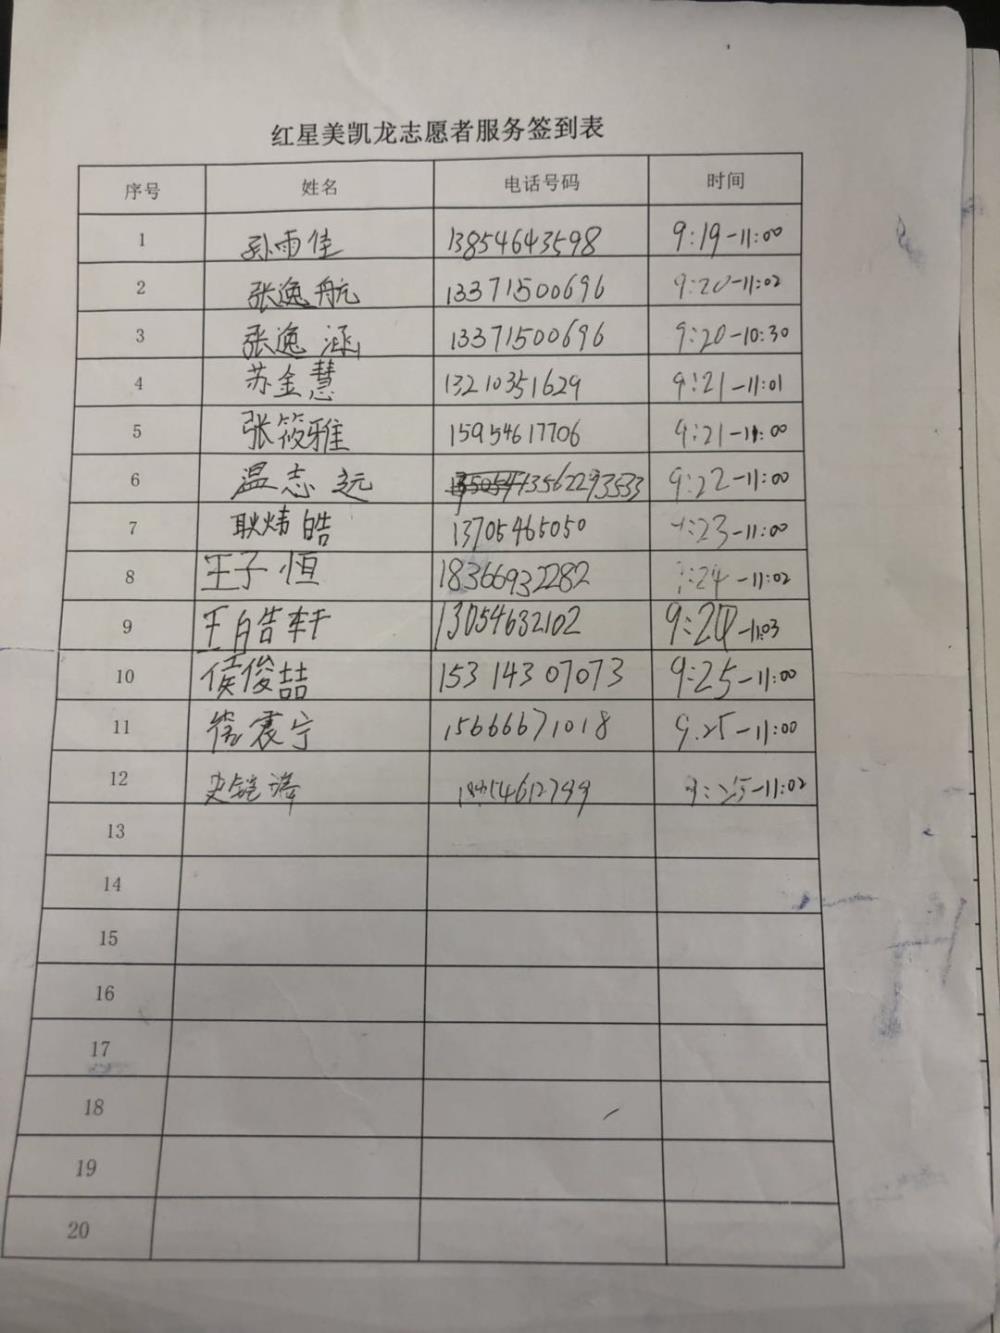 红星美凯龙志愿者服务签到表
序号 姓名 电话号码 时间
1 孙雨佳 13854643598 9:19-11:00
2 张逸航 13371500696 9:20-11:02
3 张逸涵 13371500696 9:20-10:30
4 苏金慧 13210351629 9:21-11:01
5 张筱雅 15954617706 9:21-11:00
6 温志远 13562293533 9:22-11:00
7 耿炜皓 13705465050 :23-11:00
8 王子恒 18366932282 :24-11:02
9 王皓轩 13054632102 9:24-11:03
10 侯俊喆 15314307073 9:25-11:00
11 震宁 15666671018 9:25-11:00
12 史铠泽 9:25-11:02
13
14
15
16
17
18
19
20